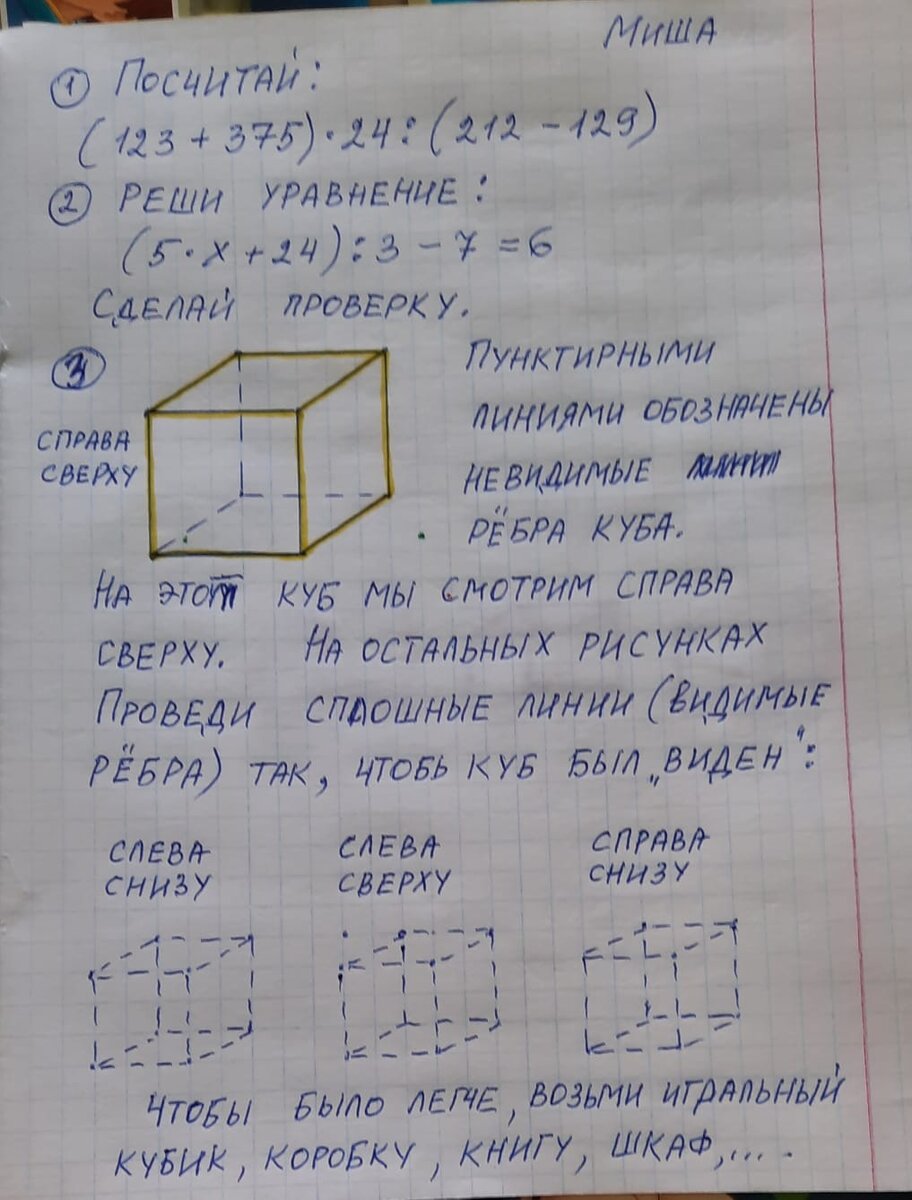 Миша
① Посчитай:
(123 + 375) · 24 : (212 − 129)
② Реши уравнение:
(5 · x + 24) : 3 − 7 = 6
Сделай проверку.
③
Пунктирными
линиями обозначены
справа
сверху
невидимые
рёбра куба.
На этот куб мы смотрим справа
сверху. На остальных рисунках
проведи сплошные линии (видимые
рёбра) так, чтобы куб был „виден":
слева
снизу
слева
сверху
справа
снизу
Чтобы было легче, возьми игральный
кубик, коробку, книгу, шкаф,... .